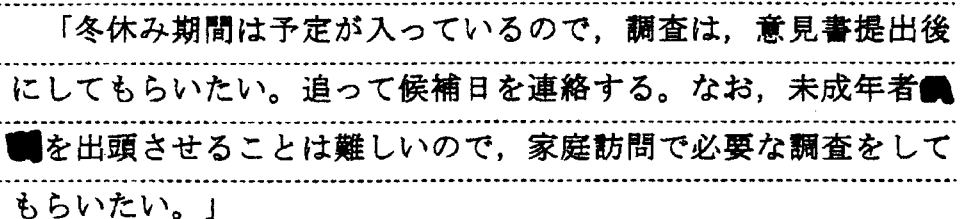 「冬休み期間は予定が入っているので，調査は，意見書提出後
にしてもらいたい。追って候補日を連絡する。なお，未成年者
を出頭させることは難しいので，家庭訪問で必要な調査をして
もらいたい。」